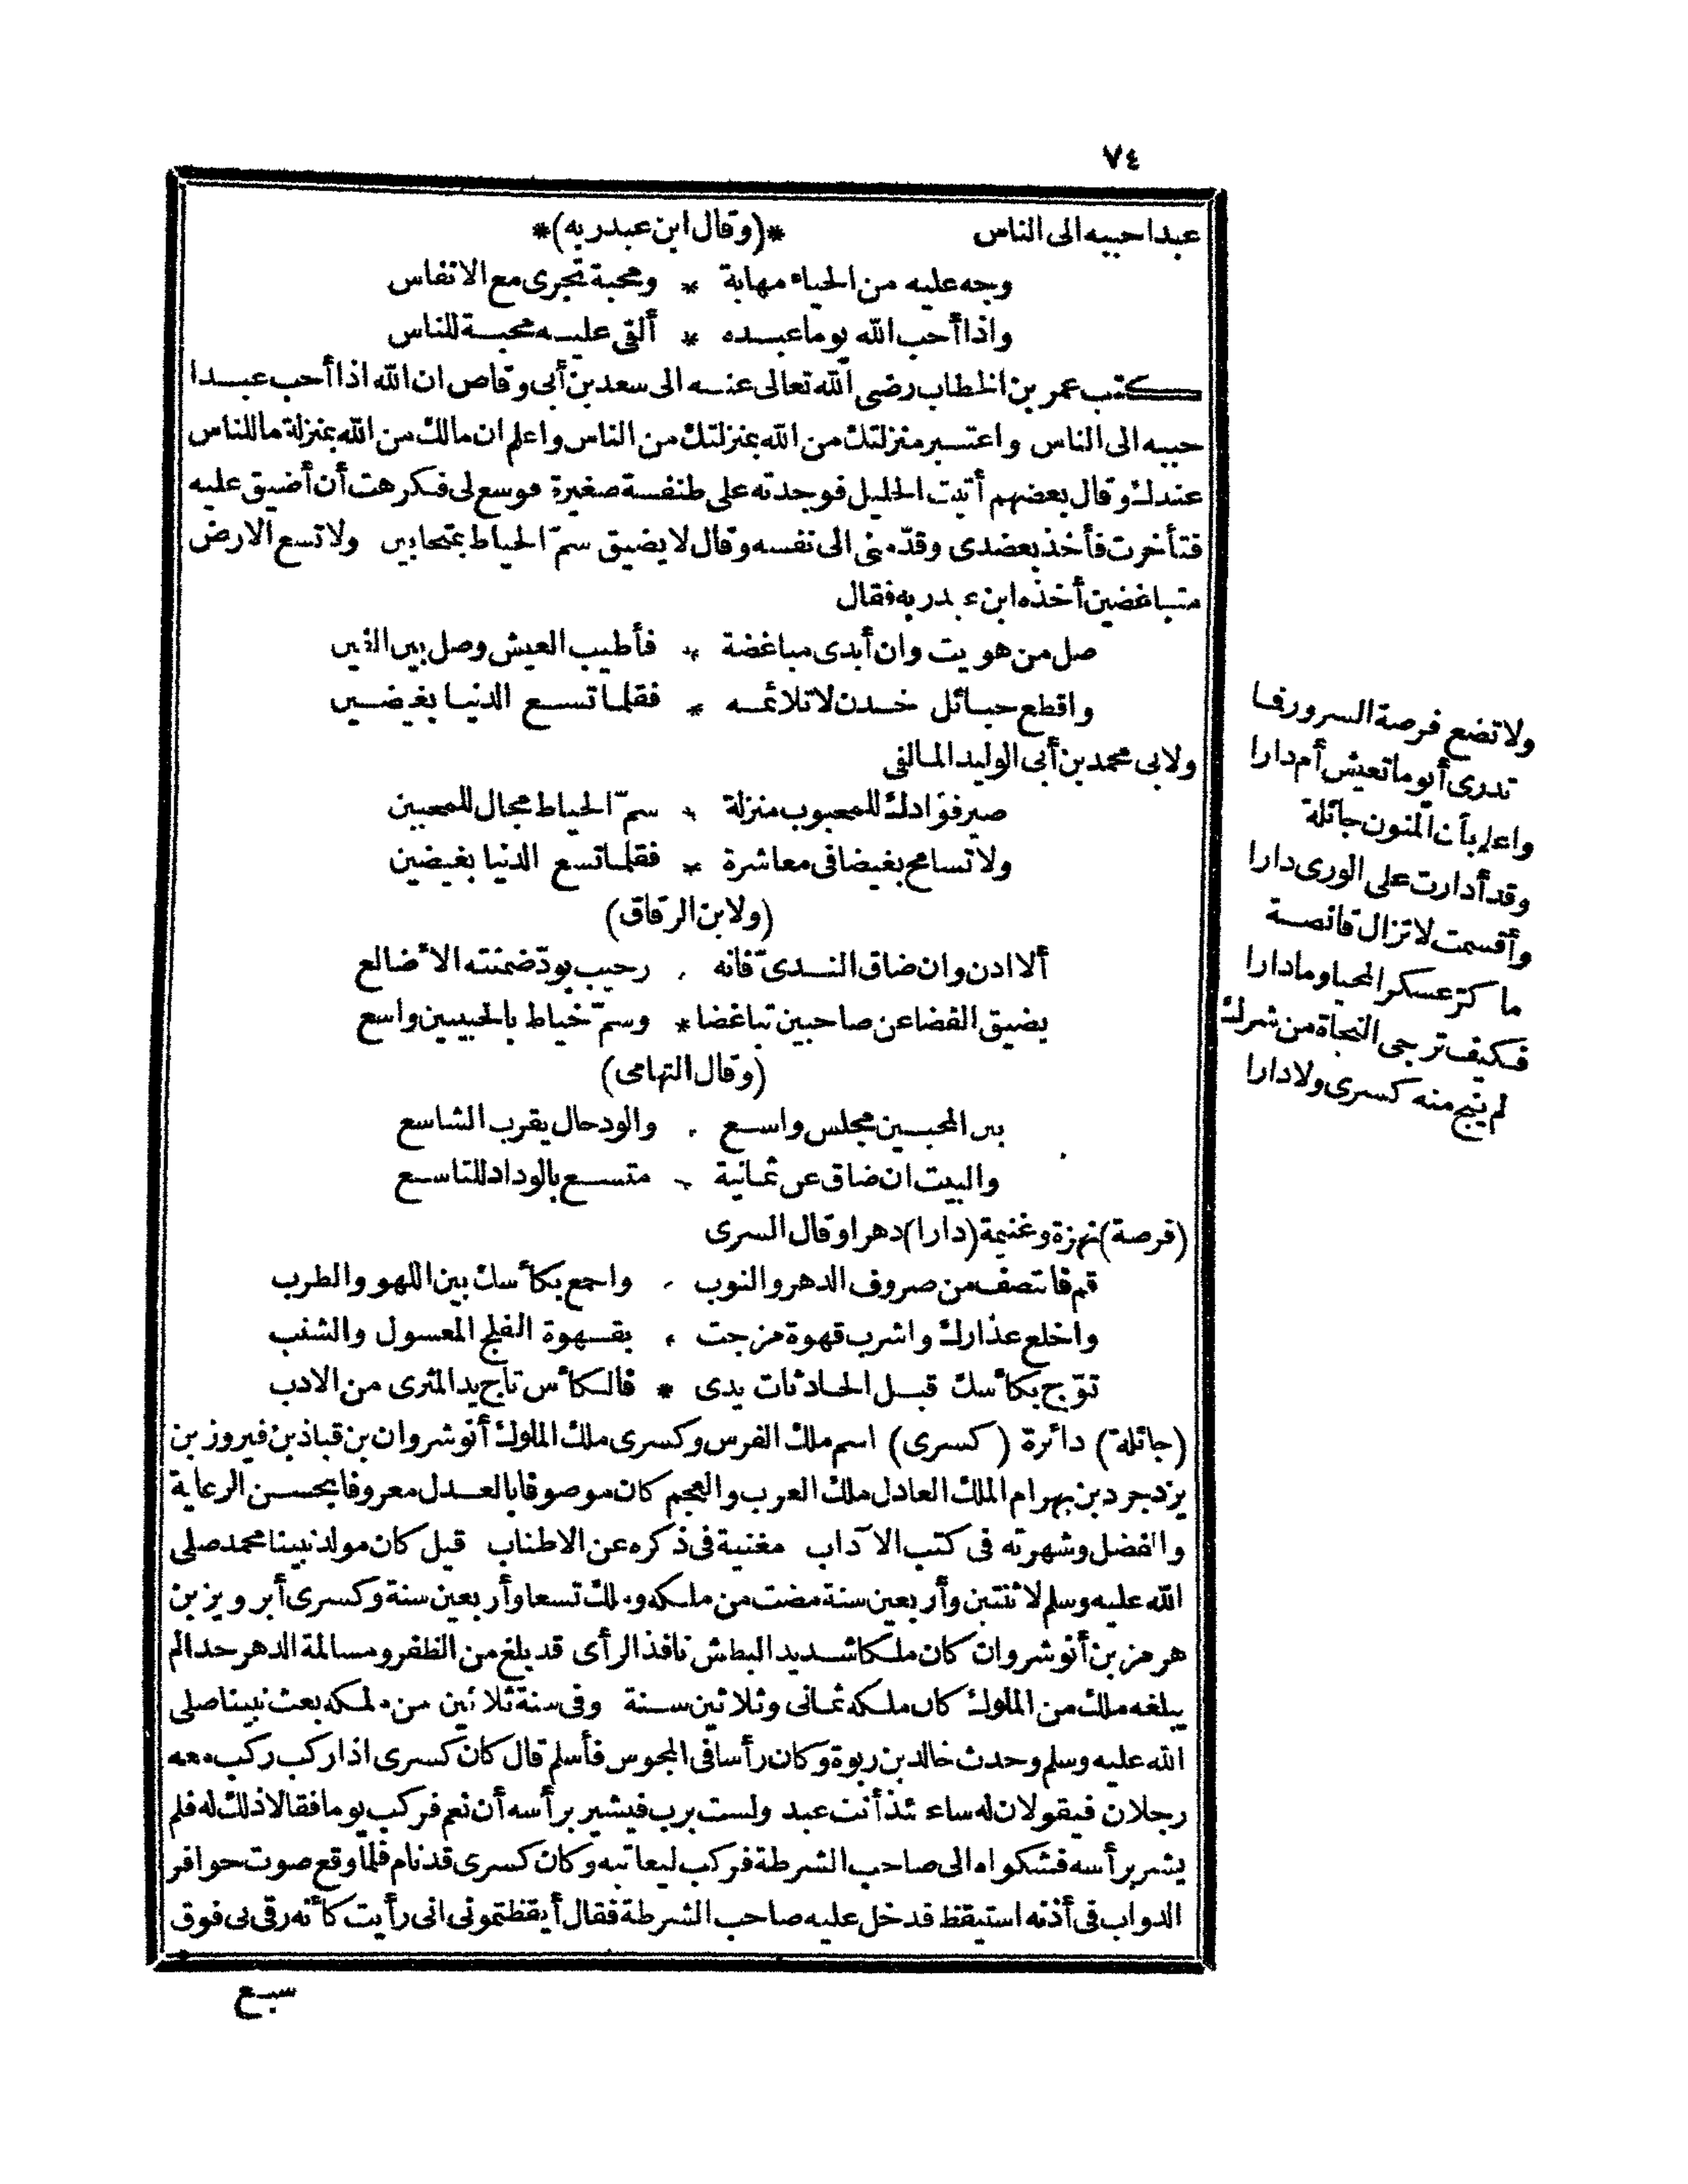 ٧٤
عبدا حببه الى الناس *(وقال ابن عبدربه)*
وجه عليه من الحياء مهابة * ومحبة تجرى مع الانفاس
واذا أحب الله يوما عبده * ألقى عليه محبة للناس
كتب عمر بن الخطاب رضى الله تعالى عنه الى سعد بن أبى وقاص ان الله اذا أحب عبدا
حببه الى الناس واعتبر منزلتك من الله بمنزلتك من الناس واعلم ان مالك من الله بمنزلة ما للناس
عندك وقال بعضهم أتيت الخليل فوجدته على طنفسة صغيرة فوسع لى فكرهت أن أضيق عليه
فتأخرت فأخذ بعضدى وقدّمنى الى نفسه وقال لا يضيق سمّ الخياط بمتحابين ولا تسع الارض
متباغضين أخذه ابن عبدربه فقال
صل من هويت وان أبدى مباغضة * فأطيب العيش وصل بين الفين
واقطع حبائل خدن لا تلائمه * فقلما تسع الدنيا بغيضين
ولابى محمد بن أبى الوليد المالقى
صير فؤادك للمحبوب منزلة * سمّ الخياط مجال للمحبين
ولا تسامح بغيضا فى معاشرة * فقلما تسع الدنيا بغيضين
(ولابن الرقاق)
ألا ادن وان ضاق الندىّ فانه . رحيب بودّ ضمنته الأضالع
يضيق الفضا عن صاحبين تباغضا * وسمّ خياط بالحبيبين واسع
(وقال التهامى)
بين المحبين مجلس واسع . والود حال يقرب الشاسع
والبيت ان ضاق عن ثمانية * متسع بالوداد للتاسع
(فرصة) نهزة وغنيمة (دارا) دهرا وقال السرى
قم فانتصف من صروف الدهر والنوب . واجمع بكأسك بين اللهو والطرب
واخلع عذارك واشرب قهوة مزجت . بقهوة الفلج المعسول والشنب
توّج بكأسك قبل الحادثات يدى * فالكأس تاج يد المثرى من الادب
(جائلة) دائرة (كسرى) اسم ملك الفرس وكسرى ملك الملوك أنوشروان بن قباذ بن فيروز بن
يزدجرد بن بهرام الملك العادل ملك العرب والعجم كان موصوفا بالعدل معروفا بحسن الرعاية
والفضل وشهرته فى كتب الآداب مغنية فى ذكره عن الاطناب قيل كان مولد نبينا محمد صلى
الله عليه وسلم لاثنتين وأربعين سنة مضت من ملكه وملك تسعا وأربعين سنة وكسرى أبرويز بن
هرمز بن أنوشروان كان ملكا شديد البطش نافذ الرأى قد بلغ من الظفر ومسالمة الدهر حدا لم
يبلغه ملك من الملوك كان ملكه ثمانى وثلاثين سنة وفى سنة ثلاثين من ملكه بعث نبينا صلى
الله عليه وسلم وحدث خالد بن ربوة وكان رأسا فى المجوس فأسلم قال كان كسرى اذا ركب ركب معه
رجلان فيقولان له ساعتئذ أنت عبد ولست برب فيشير برأسه أن نعم فركب يوما فقالا ذلك له فلم
يشر برأسه فشكواه الى صاحب الشرطة فركب ليعاتبه وكان كسرى قد نام فلما وقع صوت حوافر
الدواب فى أذنه استيقظ فدخل عليه صاحب الشرطة فقال أيقظتمونى انى رأيت كأنه رقى بى فوق
سبع
ولا تضع فرصة السرور فما
تدرى أيوما تعيش أم دارا
واعلم بأن المنون جائلة
وقد أدارت على الورى دارا
وأقسمت لا تزال قانصة
ما كرّ عسكر المحيا وما دارا
فكيف ترجى النجاة من شرك
لم ينج منه كسرى ولا دارا